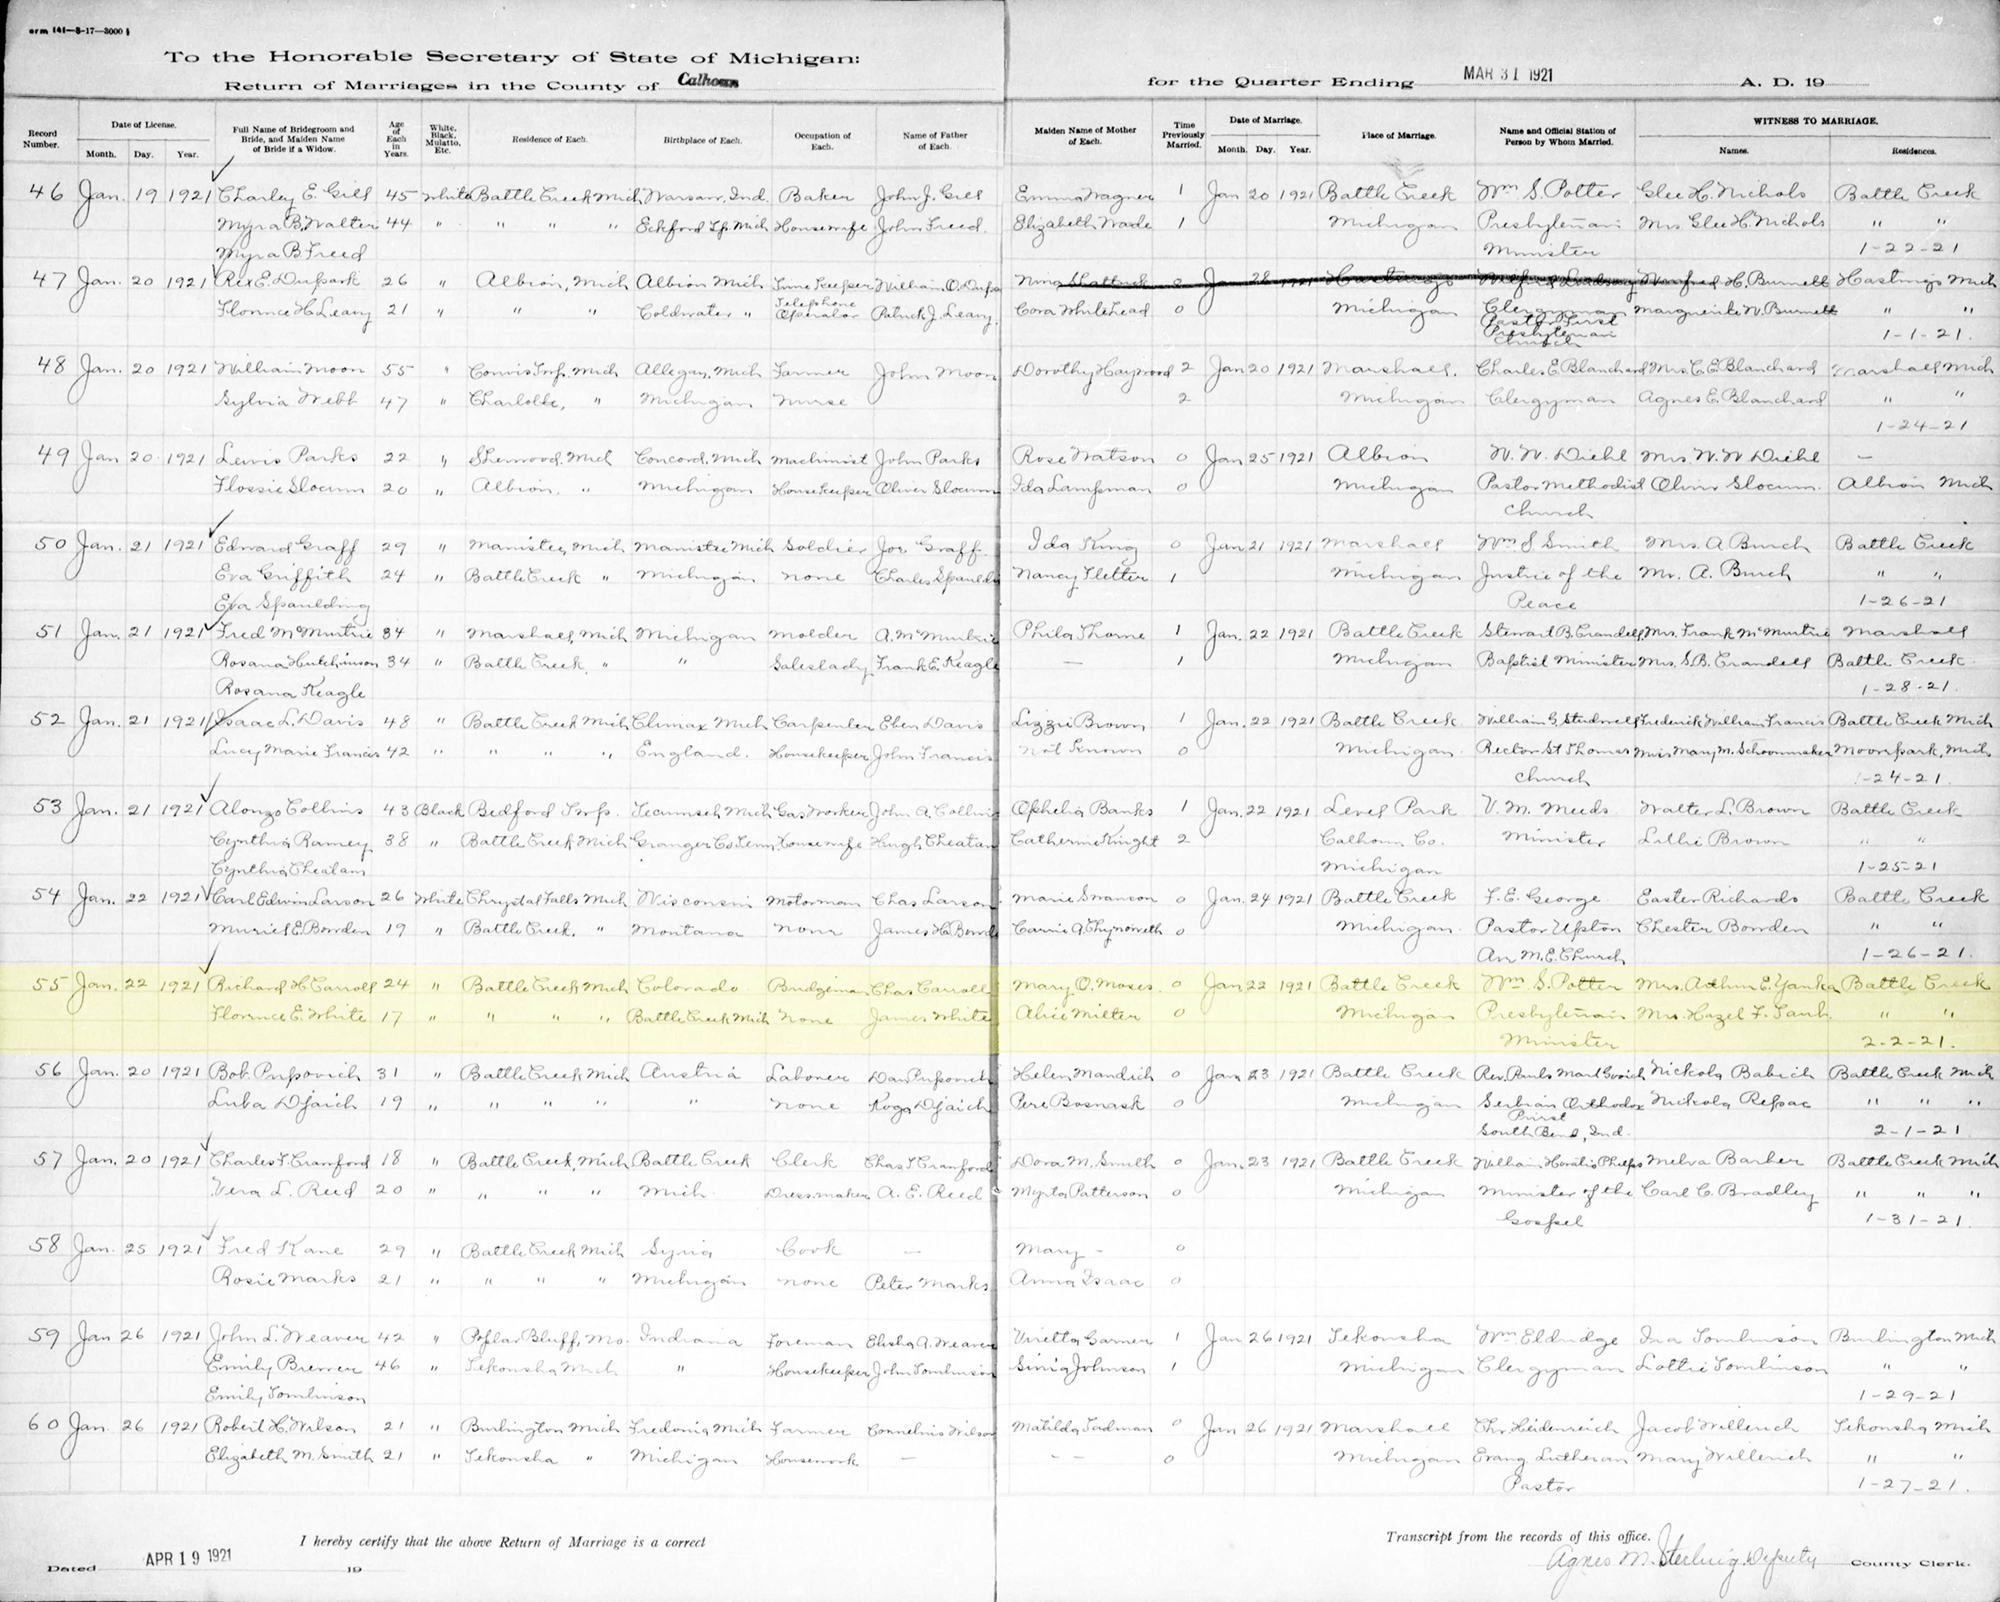 orm 141—8-17—3000
To the Honorable Secretary of State of Michigan:
Return of Marriages in the County of Calhoun for the Quarter Ending MAR 31 1921 A. D. 19
Record Number. Date of License. Month. Day. Year. Full Name of Bridegroom and Bride, and Maiden Name of Bride if a Widow. Age of Each in Years. White, Black, Mulatto, Etc. Residence of Each. Birthplace of Each. Occupation of Each. Name of Father of Each. Maiden Name of Mother of Each. Time Previously Married. Date of Marriage. Month. Day. Year. Place of Marriage. Name and Official Station of Person by Whom Married. WITNESS TO MARRIAGE. Names. Residences.
46 Jan. 19 1921 Charley E. Gill 45 White Battle Creek Mich Warsaw, Ind. Baker John J. Gill Emma Wagner 1 Jan 20 1921 Battle Creek Wm S. Potter Glee H. Nichols Battle Creek
Myra B. Walter 44 " " " " Eckford Tp. Mich Housewife John Freed Elizabeth Wade 1 Michigan Presbyterian Mrs Glee H. Nichols " "
Myra B. Freed Minister 1-22-21
47 Jan. 20 1921 Rex E. 26 " Albion, Mich Albion Mich Time Keeper William O. Nina Shattuck 0 Jan 28 1921 Hastings Winifred H. Burnell Hastings Mich
Florence H. Leary 21 " " " Coldwater " Telephone Operator Patrick J. Leary Cora Whitehead 0 Michigan Clergyman Marguerite W. Burnett " "
Pastor First
Presbyterian 1-1-21.
Church
48 Jan. 20 1921 William Moon 55 " Convis Twp. Mich Allegan, Mich Farmer John Moon Dorothy Haywood 2 Jan 20 1921 Marshall. Charles E Blanchard Mrs. C. E. Blanchard Marshall Mich
Sylvia Webb 47 " Charlotte, " Michigan Nurse 2 Michigan Clergyman Agnes E. Blanchard " "
1-24-21
49 Jan 20. 1921 Lewis Parks 22 " Sherwood, Mich Concord, Mich Machinist John Parks Rose Watson 0 Jan 25 1921 Albion W. W. Diehl Mrs. W. W Diehl —
Flossie Slocum 20 " Albion. " Michigan Housekeeper Oliver Slocum Ida Lampman 0 Michigan Pastor Methodist Oliver Slocum. Albion Mich
Church
50 Jan. 21 1921 Edward Graff 29 " Manistee, Mich Manistee Mich Soldier Joe Graff Ida King 0 Jan 21 1921 Marshall Wm S. Smith Mrs. A Burch Battle Creek
Eva Griffith 24 " Battle Creek " Michigan None Charles Nancy Fletter 1 Michigan Justice of the Mr. A. Burch " "
Eva Spaulding Peace 1-26-21
51 Jan. 21 1921 Fred McMurtrie 34 " Marshall, Mich Michigan Molder A. McMurtrie Phila Thorne 1 Jan. 22 1921 Battle Creek Stewart B. Crandell Mrs. Frank McMurtrie Marshall
Rosana Hutchinson 34 " Battle Creek " " Saleslady Frank E. Keagle — 1 Michigan Baptist Minister Mrs. S. B. Crandell Battle Creek
Rosana Keagle 1-28-21.
52 Jan. 21 1921 Isaac L. Davis 48 " Battle Creek Mich Climax Mich Carpenter Eben Davis Lizzie Brown 1 Jan. 22 1921 Battle Creek. William G. Studwell Frederick William Francis Battle Creek Mich
Lucy Marie Francis 42 " " " " England. Housekeeper John Francis Not Known 0 Michigan. Rector St Thomas Miss Mary M. Schoonmaker Moorepark, Mich
Church 1-24-21.
53 Jan. 21 1921 Alonzo Collins 43 Black Bedford Twp. Tecumseh Mich Gas Worker John A. Collins Ophelia Banks 1 Jan. 22 1921 Level Park V. M. Meeds Walter L. Brown Battle Creek
Cynthia Ramey 38 " Battle Creek Mich Granger Co Tenn Housewife Hugh Cheatam Catherine Knight 2 Calhoun Co. Minister Lillie Brown " "
Cynthia Cheatam Michigan 1-25-21
54 Jan. 22 1921 Carl Edwin Larson 26 White Chrystal Falls Mich Wisconsin Motorman Chas Larson Marie Swanson 0 Jan. 24 1921 Battle Creek F. E. George. Easter Richards Battle Creek
Muriel E. Bowden 19 " Battle Creek. " Montana None James H. Bowden Carrie A. Chynoweth 0 Michigan. Pastor Upton Chester Bowden " "
Av. M. E. Church 1-26-21.
55 Jan. 22 1921 Richard H Carroll 24 " Battle Creek Mich Colorado. Bridgeman Chas Carroll Mary O. Moses 0 Jan 22 1921 Battle Creek Wm. S. Potter Mrs. Arthur E. Battle Creek
Florence E. White 17 " " " " Battle Creek Mich None James White Alice Milter 0 Michigan Presbyterian Mrs. Hazel F. " "
Minister 2-2-21.
56 Jan. 20 1921 Bob. Pupovich 31 " Battle Creek Mich Austria Laborer Dan Pupovich Helen Mandich 0 Jan 23 1921 Battle Creek Nickola Babich Battle Creek Mich
Luba Djaich 19 " " " " " None Djaich Bosnask 0 Michigan Serbian Orthodox Nickola " " "
Priest
South Bend, Ind. 2-1-21
57 Jan. 20 1921 Charles F. Cranford 18 " Battle Creek, Mich Battle Creek Clerk Chas F Cranford Dora M. Smith 0 Jan. 23 1921 Battle Creek William Horatio Phelps Melva Barber Battle Creek Mich
Vera L. Reed 20 " " " " Mich. Dressmaker A. E. Reed Myrta Patterson 0 Michigan Minister of the Carl C. Bradley " " "
Gospel 1-31-21.
58 Jan. 25 1921 Fred Kane 29 " Battle Creek Mich Syria Cook — Mary - 0
Rosie Marks 21 " " " " Michigan None Peter Marks Anna Isaac 0
59 Jan 26 1921 John L. Weaver 42 " Poplar Bluff, Mo. Indiana Foreman Elisha A. Weaver Viretta Garner 1 Jan 26 1921 Tekonsha Wm Eldridge Ina Tomlinson Burlington Mich
Emily Brewer 46 " Tekonsha Mich " Housekeeper John Tomlinson Johnson 1 Michigan Clergyman Lottie Tomlinson " "
Emily Tomlinson 1-29-21
60 Jan. 26 1921 Robert H. Wilson 21 " Burlington Mich Fredonia Mich Farmer Cornelius Wilson Matilda Tadman 0 Jan 26 1921 Marshall Chr. Heidenreich Jacob Willerich Tekonsha Mich
Elizabeth M. Smith 21 " Tekonsha " Michigan Housework — - - 0 Michigan Evang Lutheran Mary Willerich " "
Pastor 1-27-21.
I hereby certify that the above Return of Marriage is a correct Transcript from the records of this office.
Dated APR 19 1921 19 Agnes M. Sterling, Deputy County Clerk.